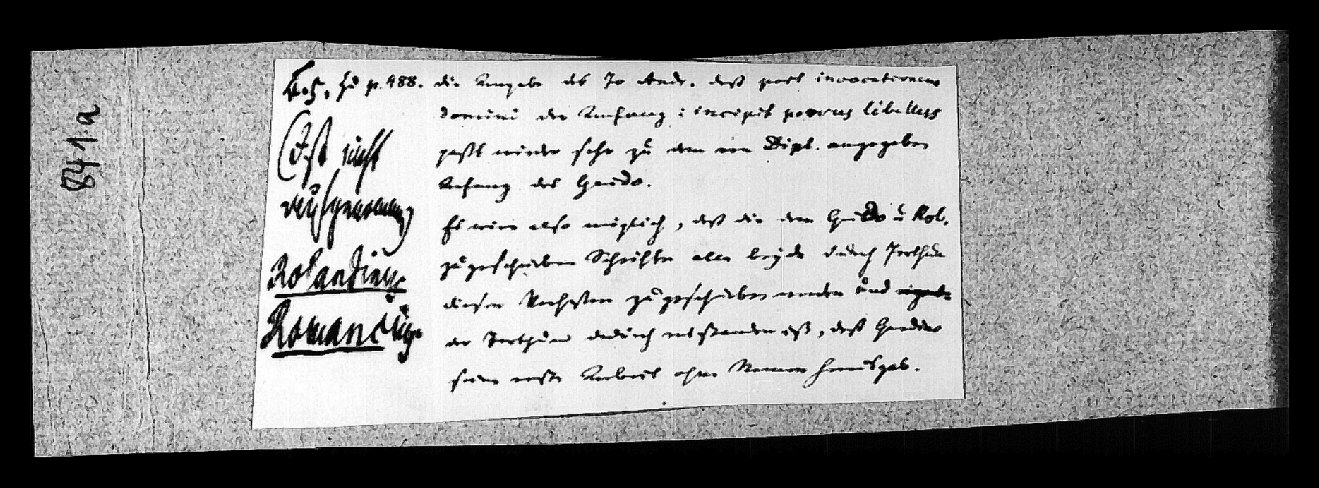 841.a
Bd. 5, zu p. 488.
(Ist nicht
aufgenommen)
Rolandinus
Romancius
die Angabe des Jo Andr. daß post invocationem
domini der Anfang: incipit parvus libellus
paßt wieder sehr zu dem von Dipl. angegeben
Anfang des Guido.
Es wäre also möglich, daß die dem Guido u Rol.
zugeschrieben Schriften alle beyde durch Irrthum
diesen zugeschrieben werden und
der Irrthum dadurch entstanden ist, daß Gandin
seine erste Arbeit ohne Namen herausgab.